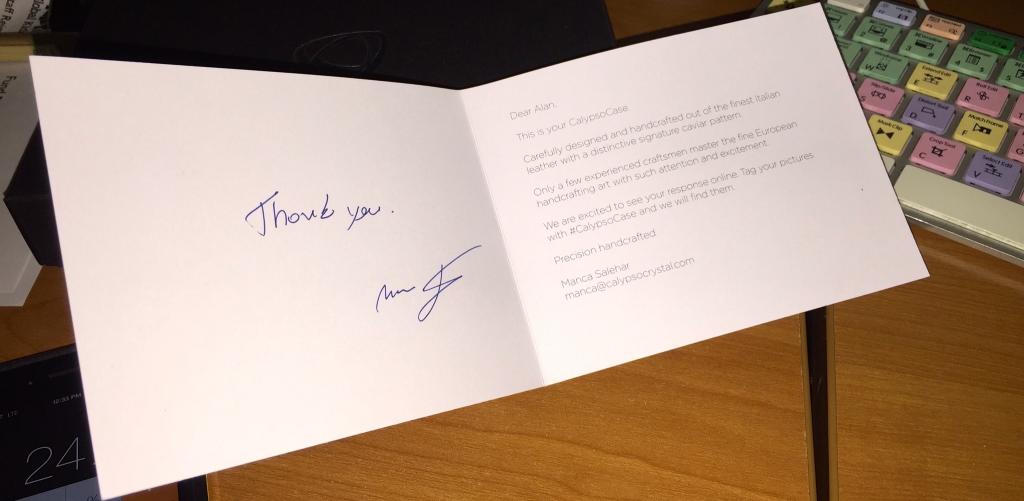 Thank you.
Dear Alan,
This is your CalypsoCase
Carefully designed and handcrafted out of the finest Italian
leather with a distinctive signature caviar pattern.
Only a few experienced craftsmen master the fine European
handcrafting art with such attention and excitement.
We are excited to see your response online. Tag your pictures
with #CalypsoCase and we will find them.
Precision handcrafted
Manca Salehar
manca@calypsocrystal.com
12:33 PM
LTE
24
Extend Edit
Roll Edit
Match Frame
Mark Clip
Crop Tool
Select Edit
W
E
4
S
R
D
F
C
V
G